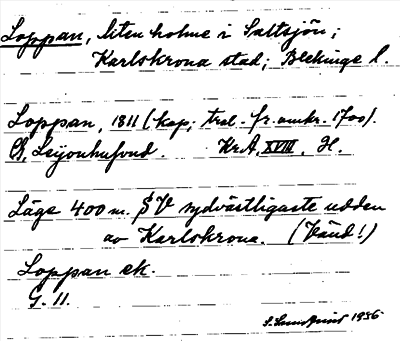 Loppan, liten holme i Saltsjön;
Karlskrona stad; Blekinge l.
Loppan, 1811 (kop; trol. fr. omkr. 1700).
Leijonhufvud. Kr.A. XVIII. H.
Läge 400 m. SV sydvästligaste udden
av Karlskrona. (Vänd!)
Loppan ek.
G. 11.
1936